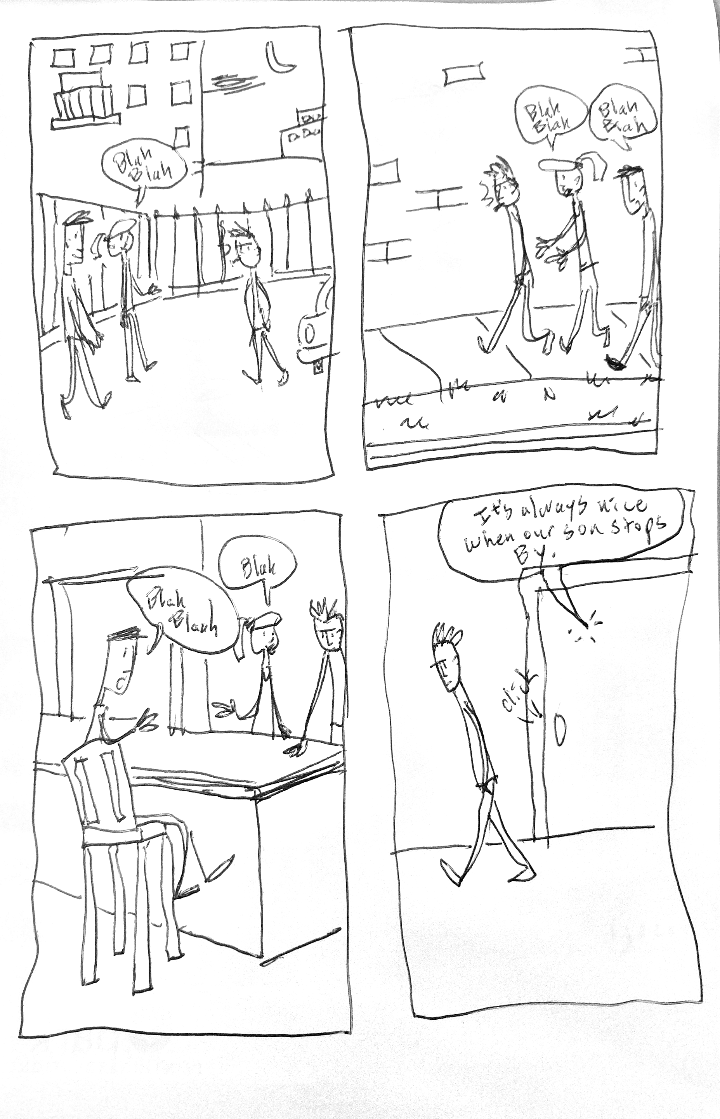 Blah
Blah
Blah
Blah
Blah
Blah
Blah
Blauh
Blah
It's always nice
when our son stops
By.
click